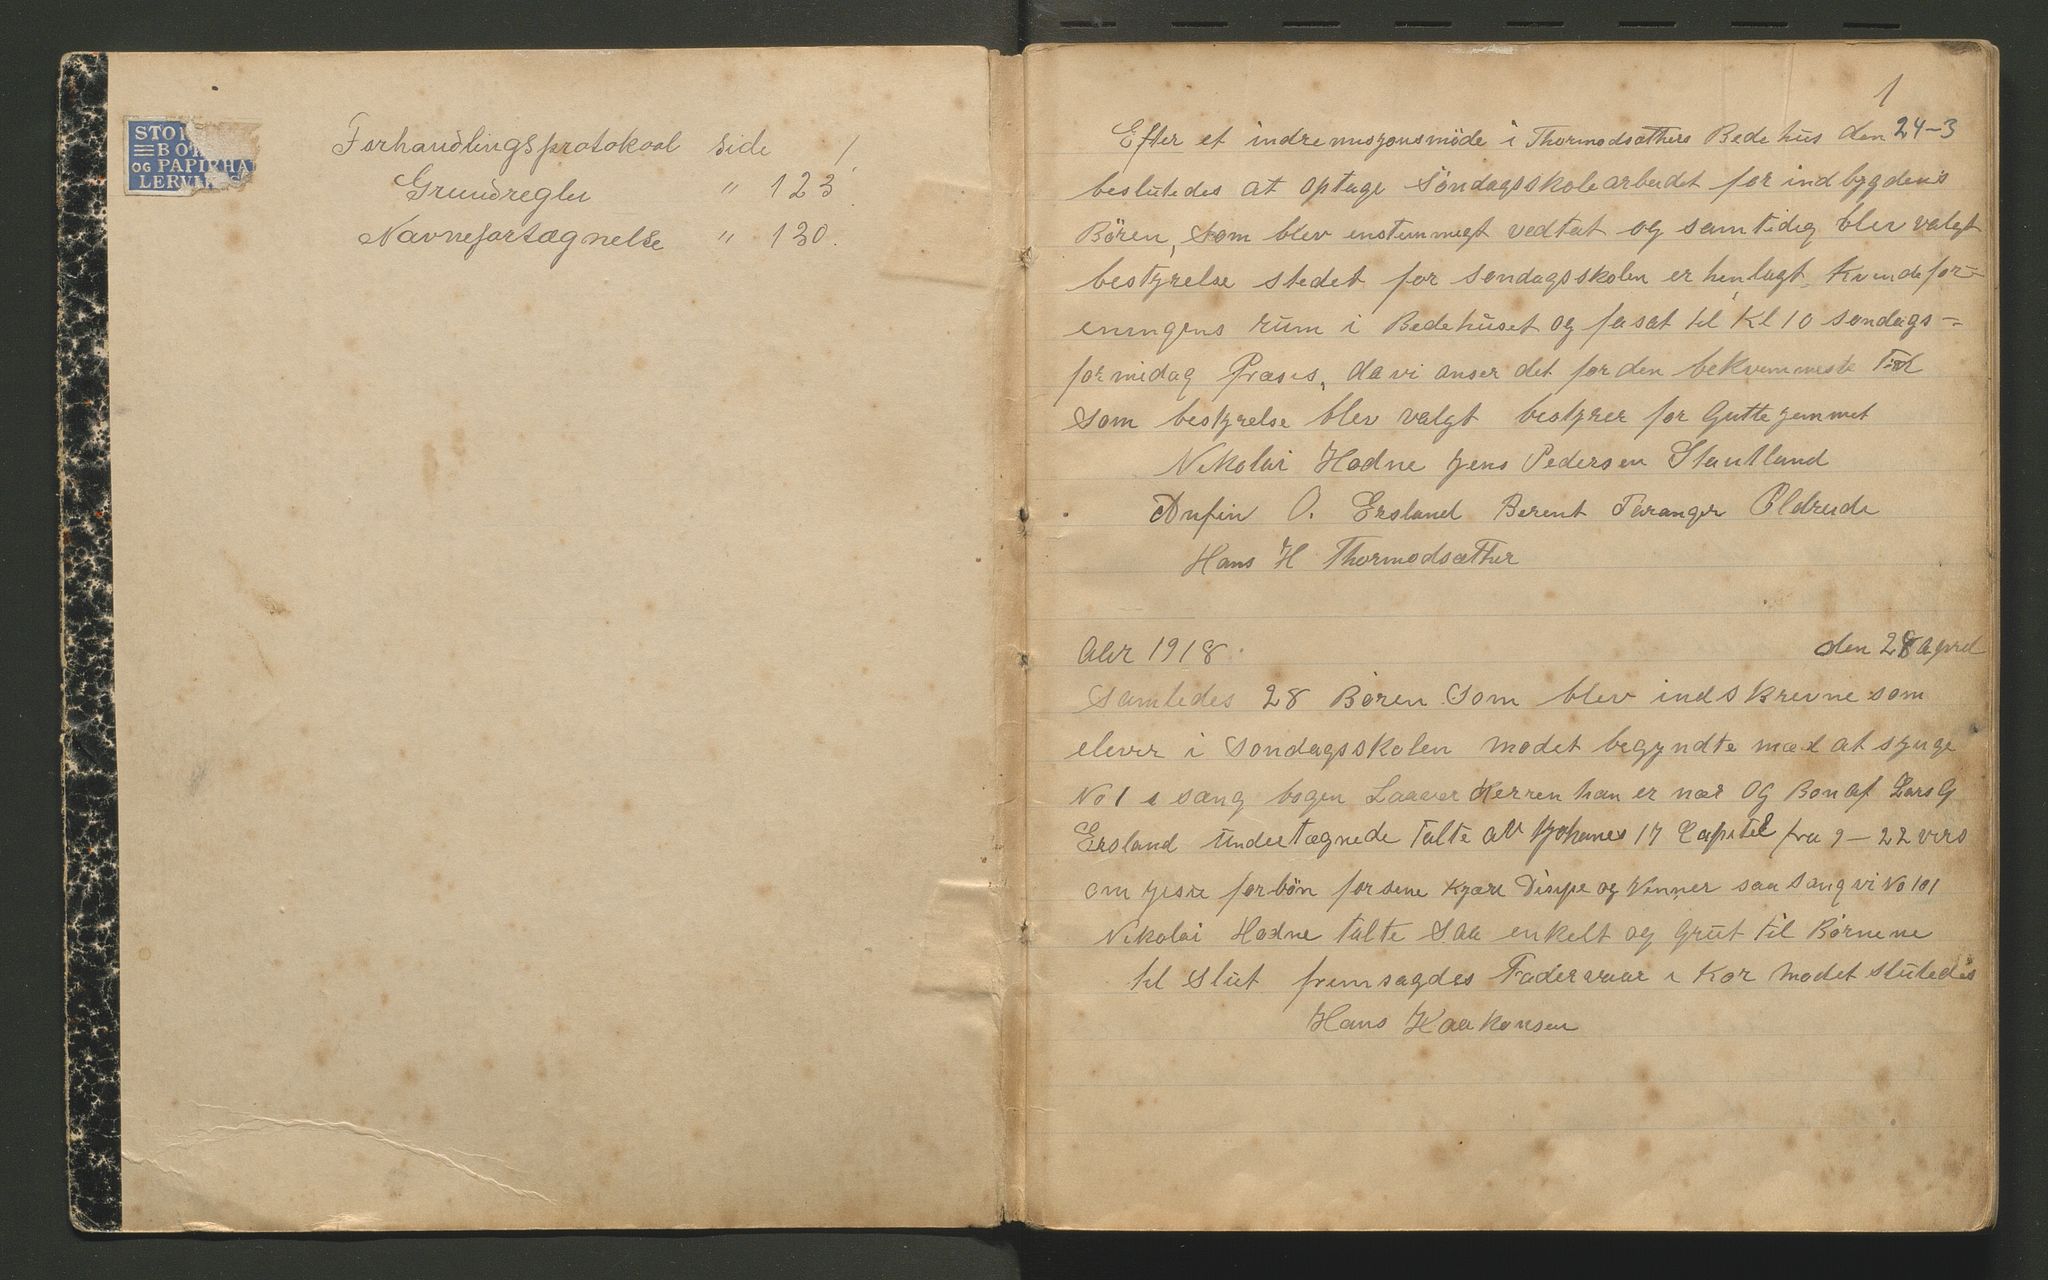 STO
BO
OG PAPIRHA
LERVI
Forhandlingsprotokool side 1
Grundregler " 123.
Navnefortægnelse " 130.
1
Efter et indremisjonsmöde i Thormodsæthers Bedehus den 24-3
beslutedes at optage Söndagsskolearbeidet for indbygdens
Bören, som blev enstemmigt vedtat og samtidig blev valgt
bestyrelse stedet for sondagsskolen er henlagt Kvindefor-
eningens rum i Bedehuset og fasat til Kl 10 sondags-
formidag Præsis, da vi anser det for den bekvemmeste Tid
Som bestyrelse blev valgt bestyrer for Guttehjemmet
Nikolai Hodne Jens Pedersen Stautland
Anfin O. Ersland Berent Taranger Oldereide
Hans H Thormodsæther
Aar 1918. den 28 april
Samledes 28 Bören som blev indskrevne som
elever i Sondagsskolen modet begyndte med at synge
No 1 i sang bogen Laaver Herren han er nær og Bon af Lars G
Ersland undertægnede talte av Johanes 17 Capitel fra 9-22 vers
om forbön for sine Kjære Disipe og Venner saa sang vi No 101
Nikolai Hodne talte saa enkelt og grut til Börnene
til slut fremsagdes Fadervaar i Kor modet slutedes
Hans Haakonsen